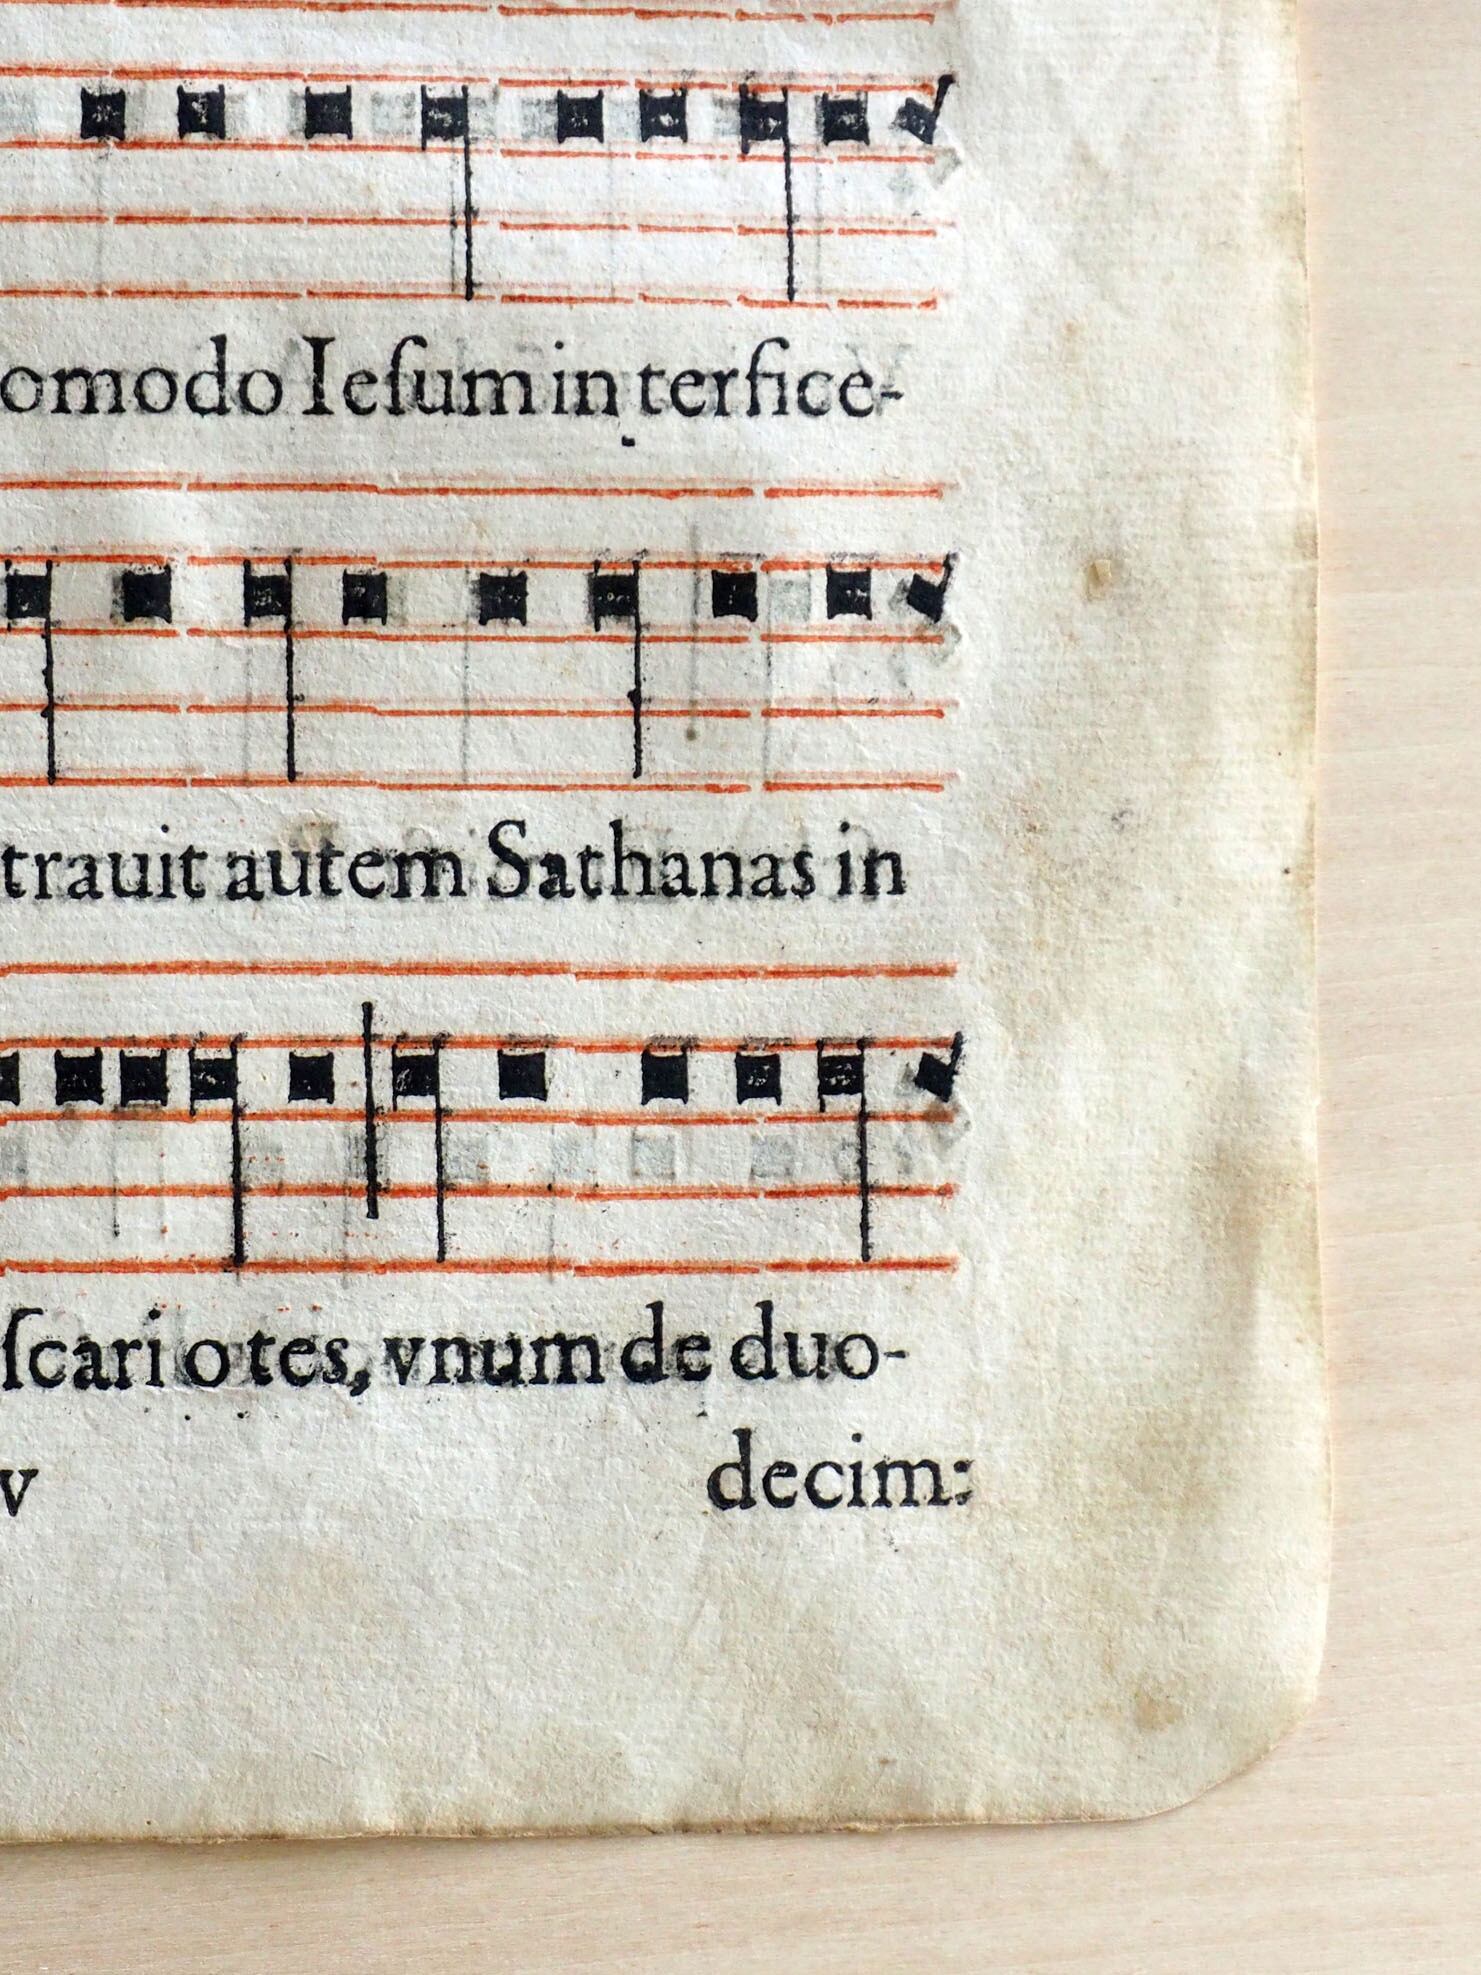 omodo Ieſum in terfice-
trauit autem Sathanas in
ſcari o tes, vnum de duo-
v decim: